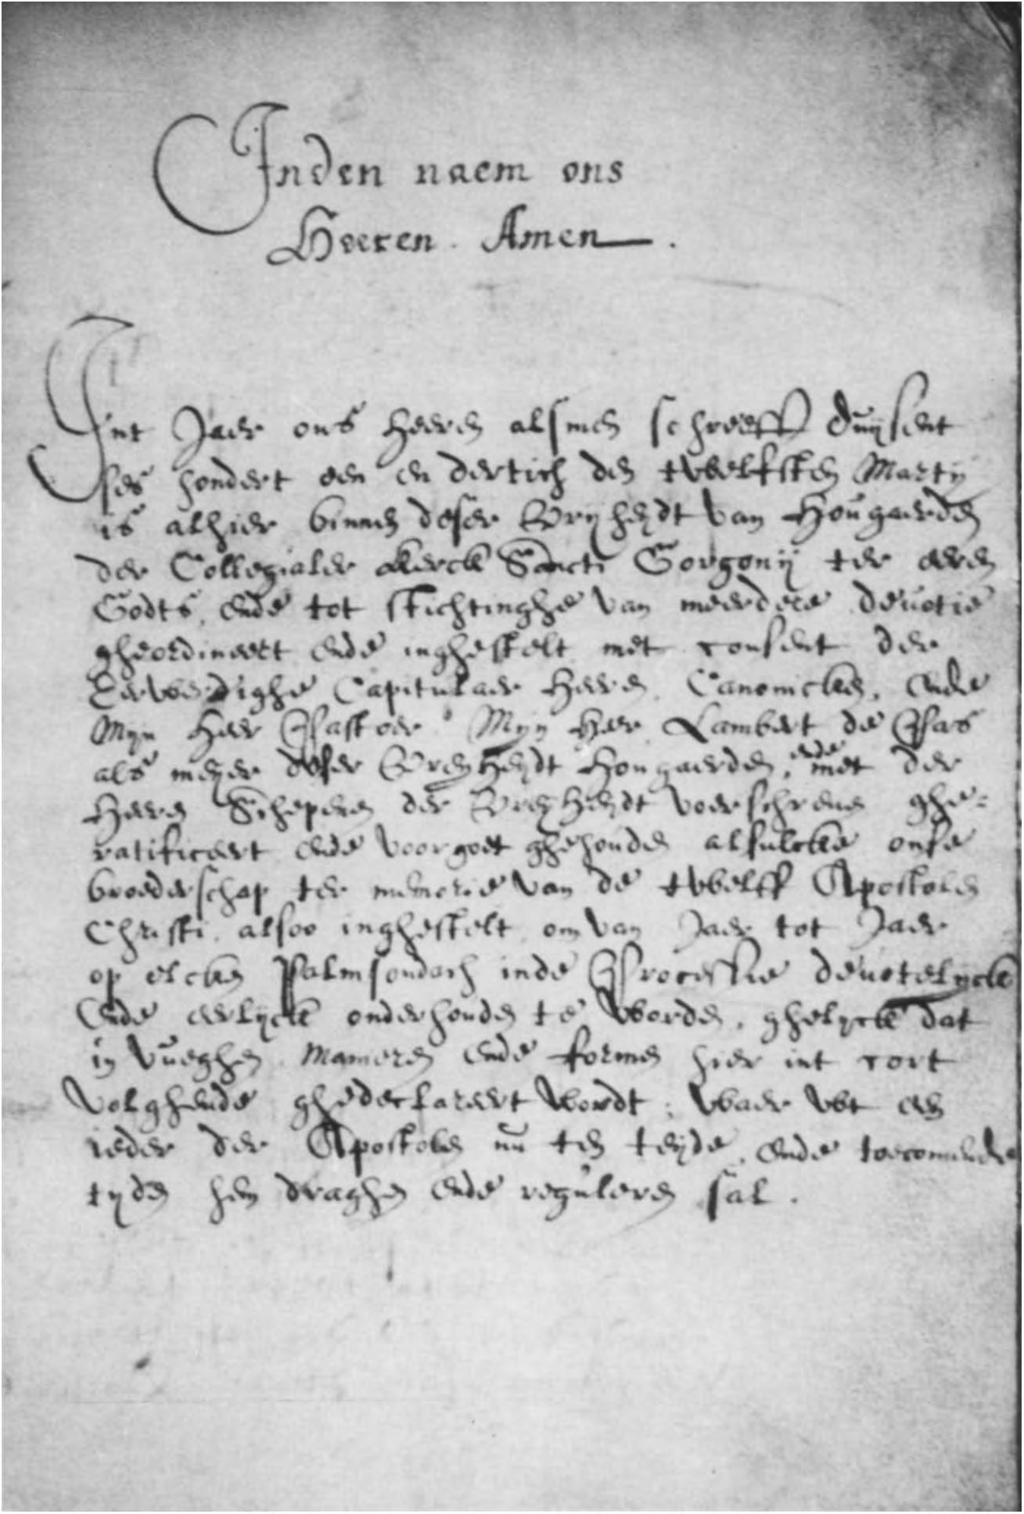 Inden naem ons
Heeren. Amen.
Int Jaer ons heeren alsmen schreeff duijsent
ses hondert een en dertich den twelfsten Martij
is alhier binnen deser Vrijheijdt van Hougaerden
der Collegialer kercke Sancti Gorgonij ter eeren
Godts, ende tot stichtinghe van meerdere deuotie
gheordineert ende inghestelt met consent der
Eerwerdighe Capitulaer heeren, Canonicken, ende
Mijn heer Pastoer Mijn heer Lambert de Pars
als meijer deser Vreijheijdt Hougaerden, ende met der
heeren Schepenen der Vreijheijdt voerschreuen ghe=
ratificeert ende voorgoet ghehouden alsulcke onse
broederschap ter memorie van de twelff Apostolen
Christi, alsoo inghestelt om van Jaer tot Jaer
op elcken Palmsondach inde Processie deuotelijck
ende eerlijck onderhouden te worden, ghelijck dat
in vueghen Manieren ende formen hier int cort
volghende ghedeclareert wordt: waer wt een
ieder der Apostolen nu ten teijde, ende toecomende
tyden hen draghen ende reguleren sal.